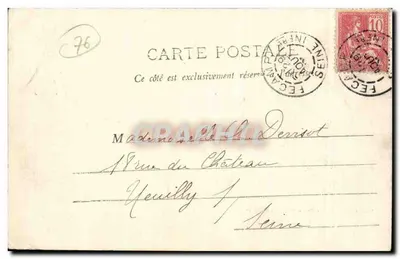 76
CARTE POSTALE
Ce côté est exclusivement réservé
10
FECAMP
SEINE INFRE
Mademoiselle
18 rue du Château
Neuilly s/
Seine